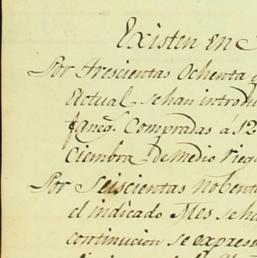 Existen en
Por trescientas Ochenta
Actual se han introdu
faneg.s Compradas á 12
Ciembra De Medio rieg
Por Seiscientas Nobenta
el indicado Mes se ha
continucion se expres